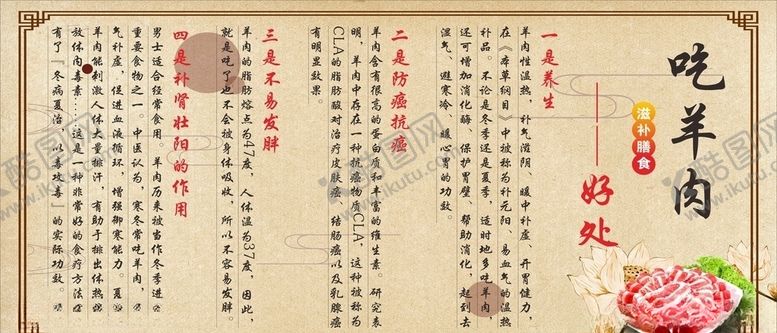 吃羊肉
——好处
滋补膳食
一是养生
羊肉性温热，补气滋阴、暖中补虚、开胃健力，
在《本草纲目》中被称为补元阳、易血气的温热
补品。不论是冬季还是夏季，适时地多味羊肉，
还可增加消化酶、保护胃壁、帮助消化、起到去
湿气、避寒冷、暖心胃的功数。
二是防癌抗癌
羊肉含有很高的蛋白质和丰富的维生素。研究表
明，羊肉中存在一种抗癌物质CLA，这种被称为
CLA的脂肪酸对治疗皮肤癌、结肠癌以及乳腺癌
有明显效果。
三是不易发胖
羊肉的脂肪熔点为47度，人体温为37度，因此，
就是吃了也不会被身体吸收，所以不容易发胖。
四是补肾壮阳的作用
男士适合经常食用。羊肉历来被当作冬季进
重要食物之一。中医认为，寒冬常吃羊肉，
气补虚，促进血液循环，增强御寒能力。夏
羊肉能刺激人体大量排汗，有助于排出体热
放体内毒素……这是一种非常好的食疗方法
有了『冬病夏治，以毒攻毒』的实际功数。
酷图网
www.ikutu.com